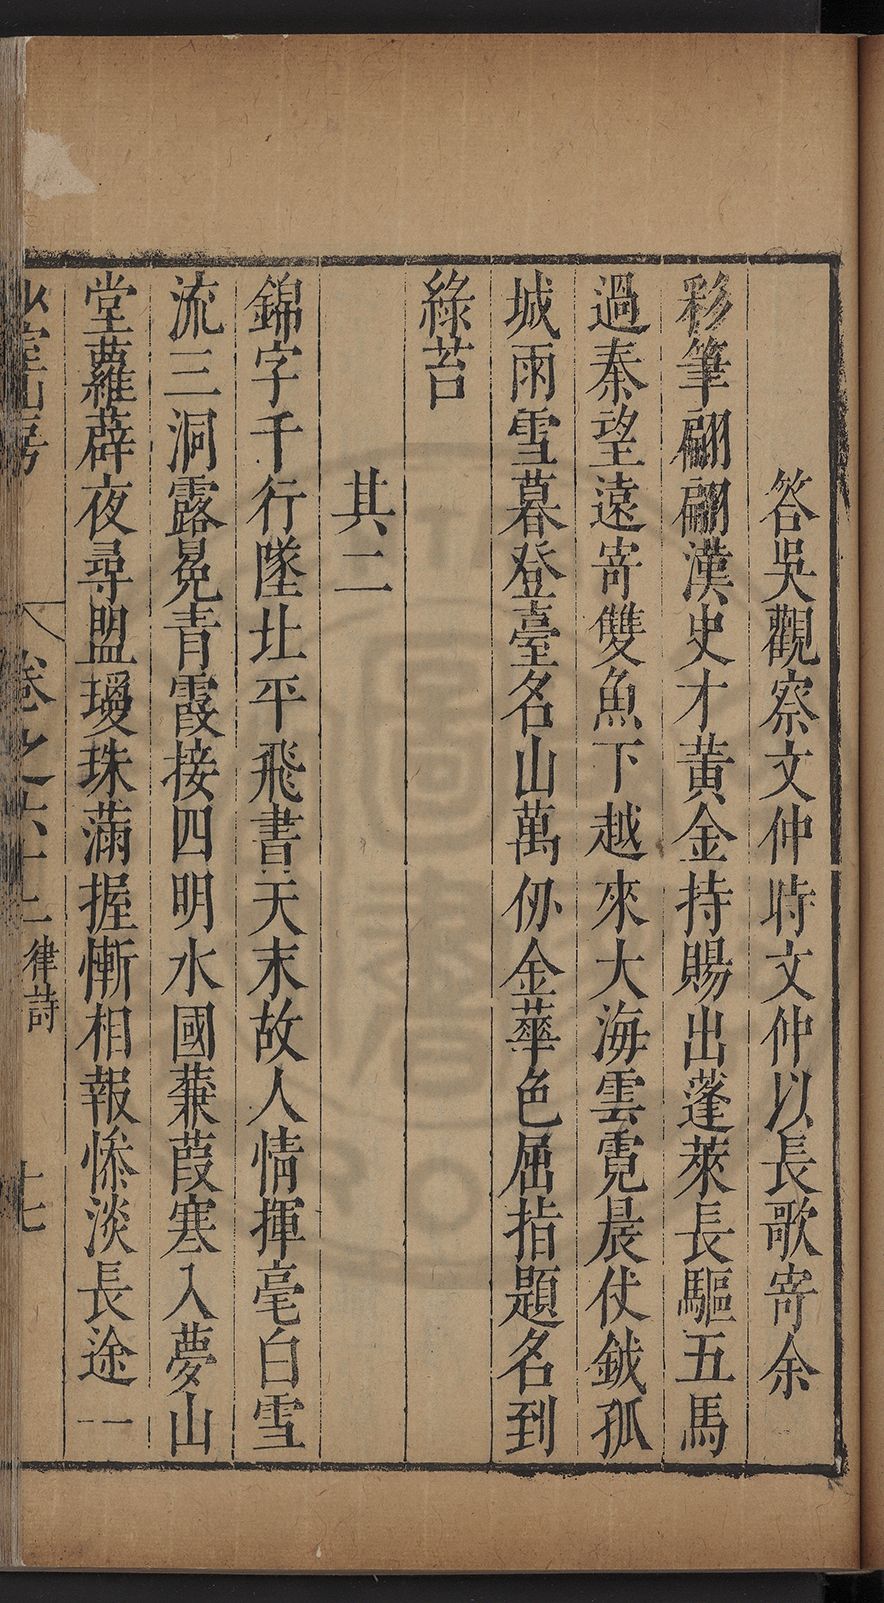 答吳觀察文仲時文仲以長歌寄余
彩筆翩翩漢史才黃金持賜出蓬萊長驅五馬
過秦望遠寄雙魚下越來大海雲霓晨仗鉞孤
城雨雪暮登臺名山萬仞金華色屈指題名到
綠苔
其二
錦字千行墜北平飛書天末故人情揮毫白雪
流三洞露冕青霞接四明水國蒹葭寒入夢山
堂蘿薜夜尋盟瑷珠滿握慚相報慘淡長途一
少室山房
卷之六十二律詩
十七